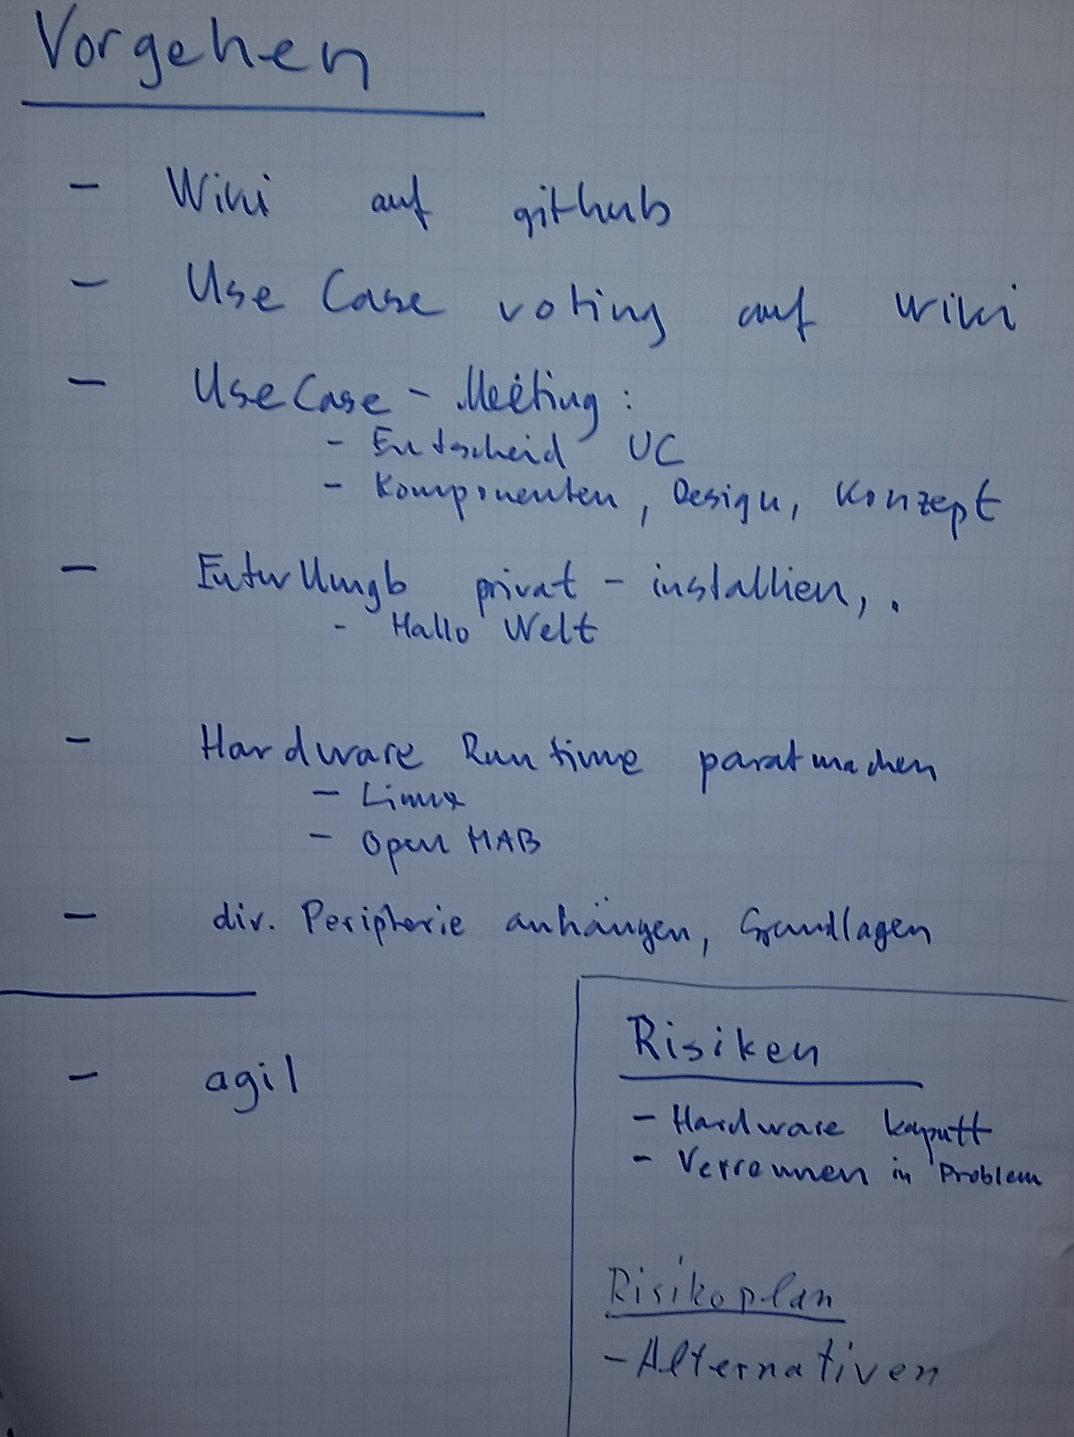 Vorgehen
- Wiki auf github
- Use Case voting auf wiki
- UseCase - Meeting:
- Entscheid UC
- Komponenten, Design, Konzept
- privat - installien, .
- Hallo Welt
- Hardware Runtime paratmachen
- Linux
- Open HAB
- div. Peripherie anhängen, Grundlagen
- agil
Risiken
- Hardware kaputt
- Verrennen in Problem
Risikoplan
- Alternativen